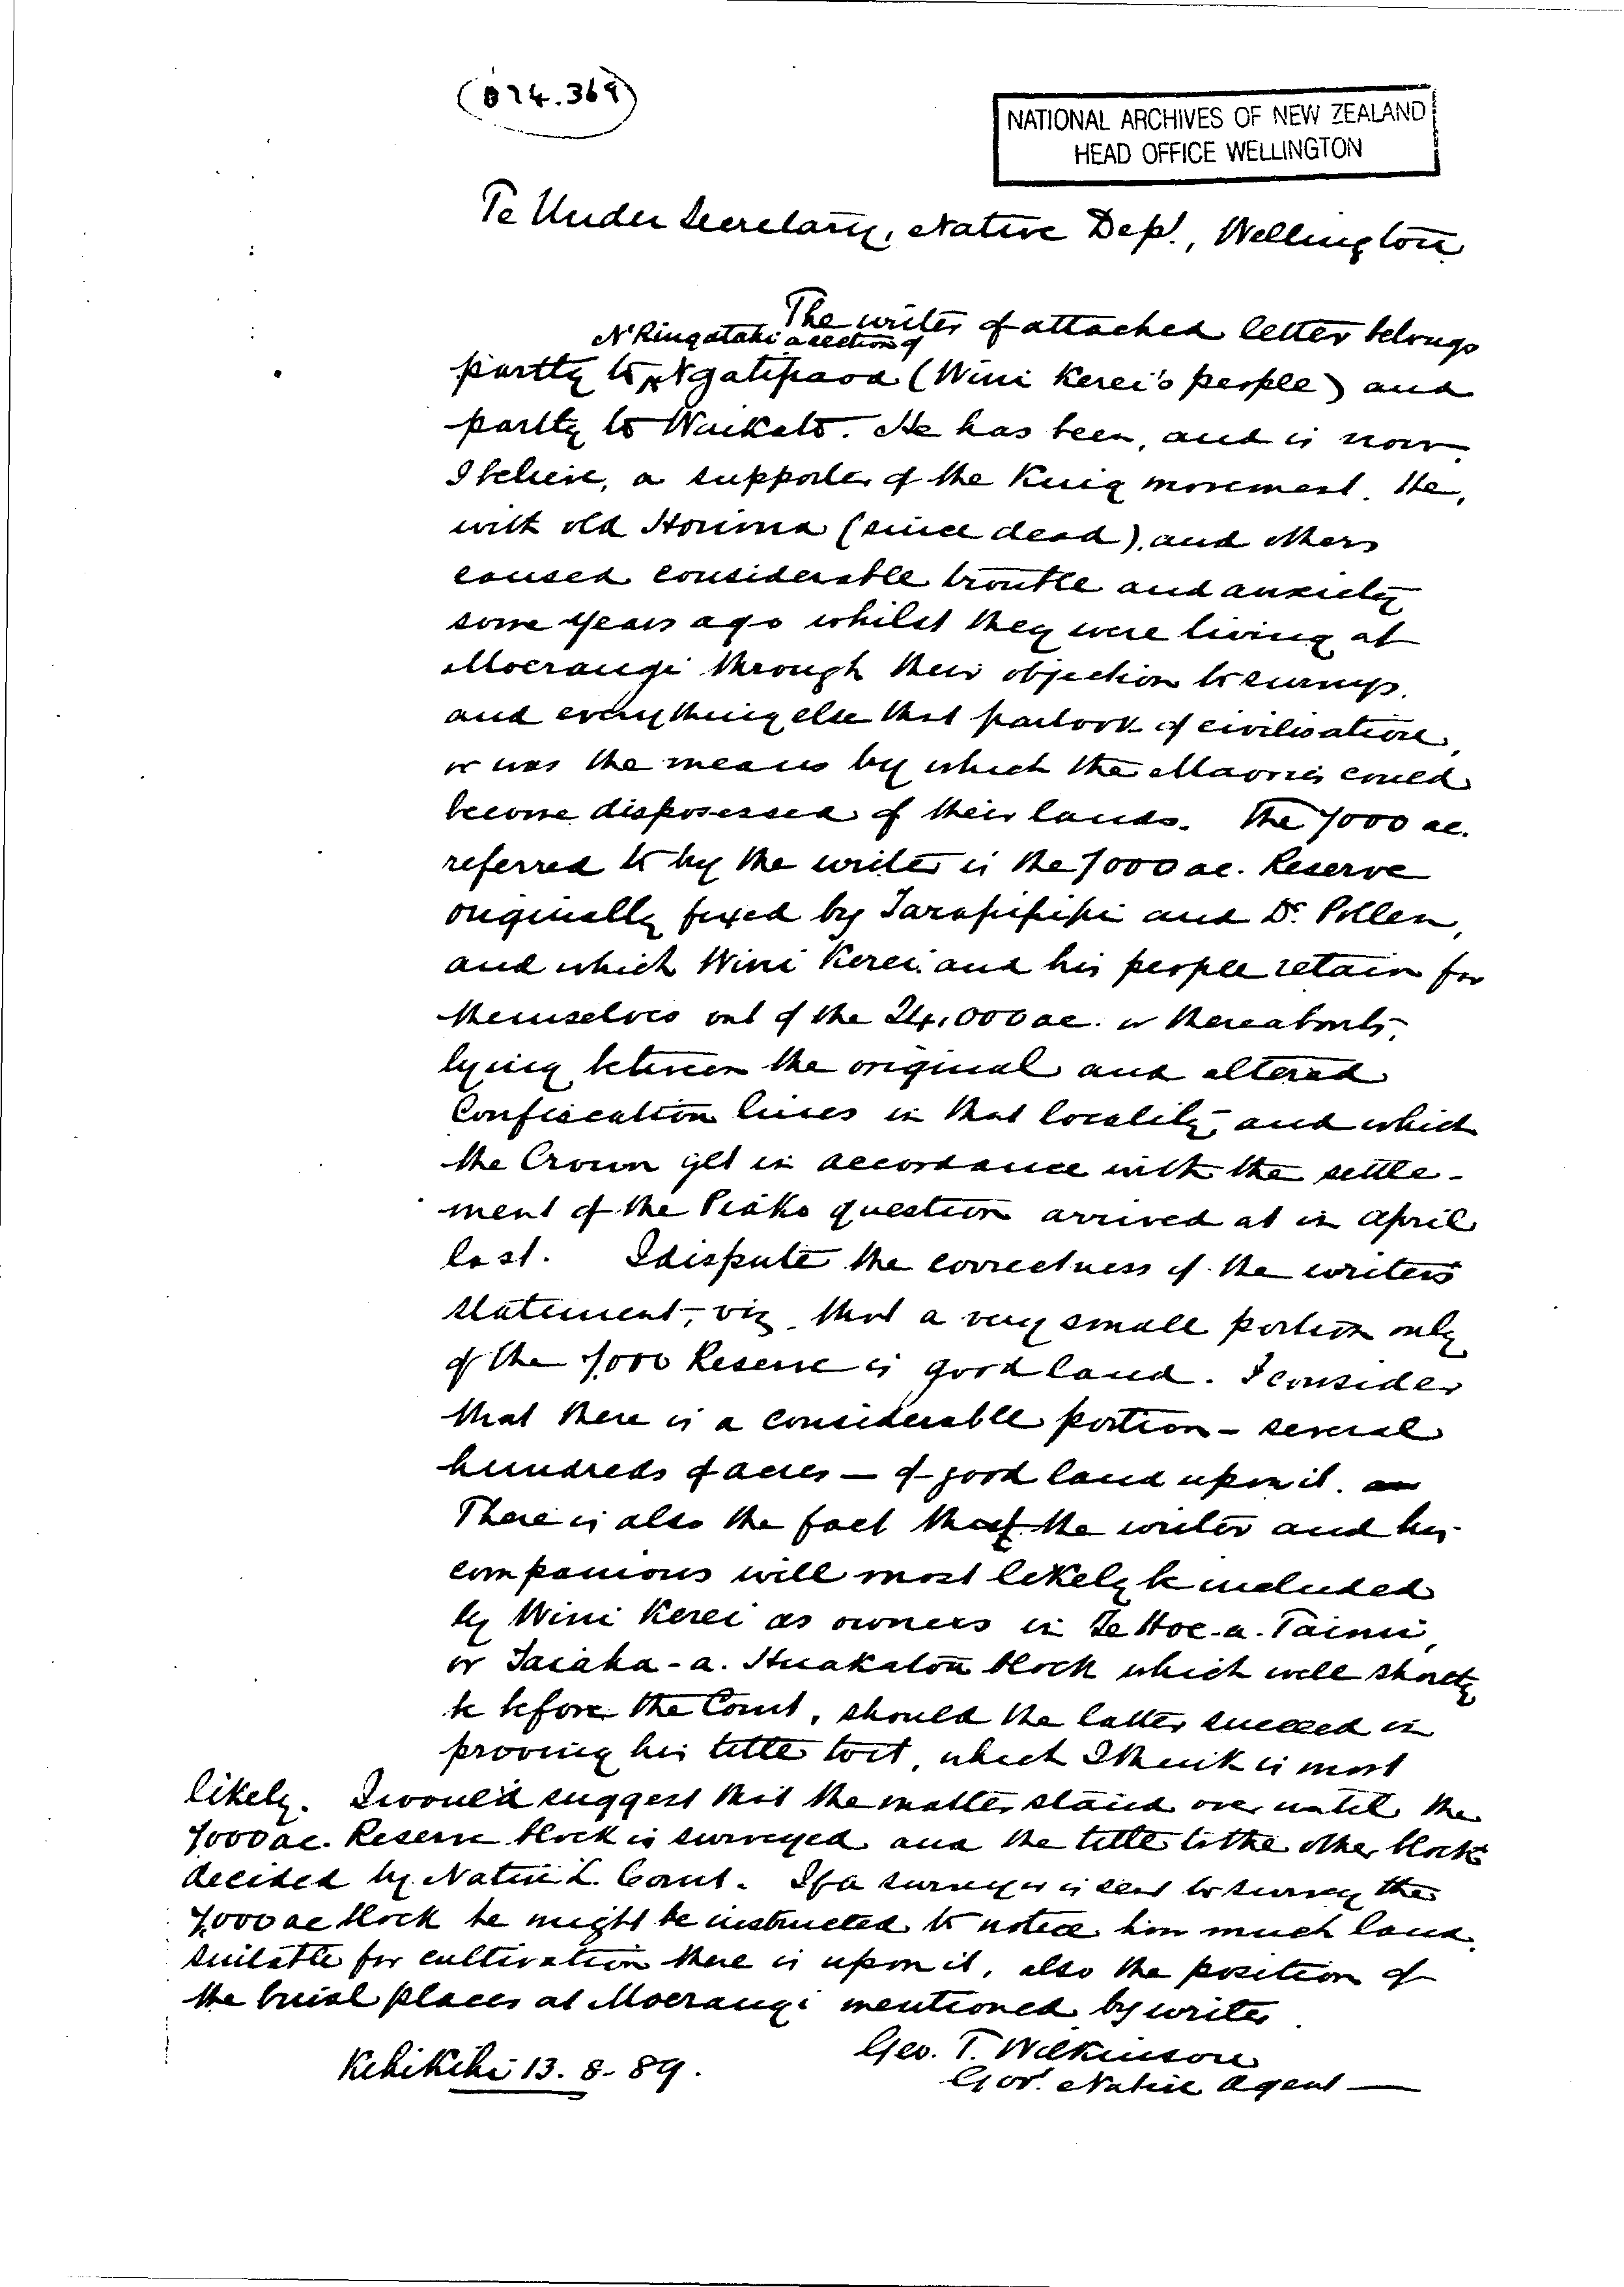 (B74.369)
NATIONAL ARCHIVES OF NEW ZEALAND
HEAD OFFICE WELLINGTON
Te Under Secretary, Native Dept., Wellington
The writer of attached letter belongs
N'Ringatahi a section of
partly to ^ Ngatipaoa (Wini Kerei's people) and
partly to Waikato. He has been, and is now,
I believe, a supporter of the King movement. He,
with old Houma (since dead), and others
caused considerable trouble and anxiety
some years ago whilst they were living at
Moerangi through their objection to surveys,
and everything else that partook of civilisation,
or was the means by which the Maories could
become dispossessed of their lands. The 7000 ac.
referred to by the writer is the 7000 ac. Reserve
originally fixed by Tarapipipi and Dr. Pollen,
and which Wini Kerei and his people retain for
themselves out of the 24,000 ac. or thereabouts,
lying between the original and altered
Confiscation lines in that locality, and which
the Crown get in accordance with the settle-
ment of the Piako question arrived at in April
last. I dispute the correctness of the writers
statement, viz. that a very small portion only
of the 7,000 Reserve is good land. I consider
that there is a considerable portion - several
hundreds of acres - of good land upon it.
There is also the fact that the writer and his
companions will most likely be included
by Wini Kerei as owners in Te Hoe-a-Tainui,
or Taiaha-a-Huakatoa block which will shortly
be before the Court, should the latter succeed in
proving his title to it, which I think is most
likely. I would suggest that the matter stand over until the
7000 ac. Reserve block is surveyed and the title to the other block
decided by Native L. Court. If a surveyor is sent to survey the
7,000 ac block he might be instructed to notice how much land
suitable for cultivation there is upon it, also the position of
the burial places at Moerangi mentioned by writer.
Geo. T. Wilkinson
Kihikihi 13.8.89.
Govt. Native Agent